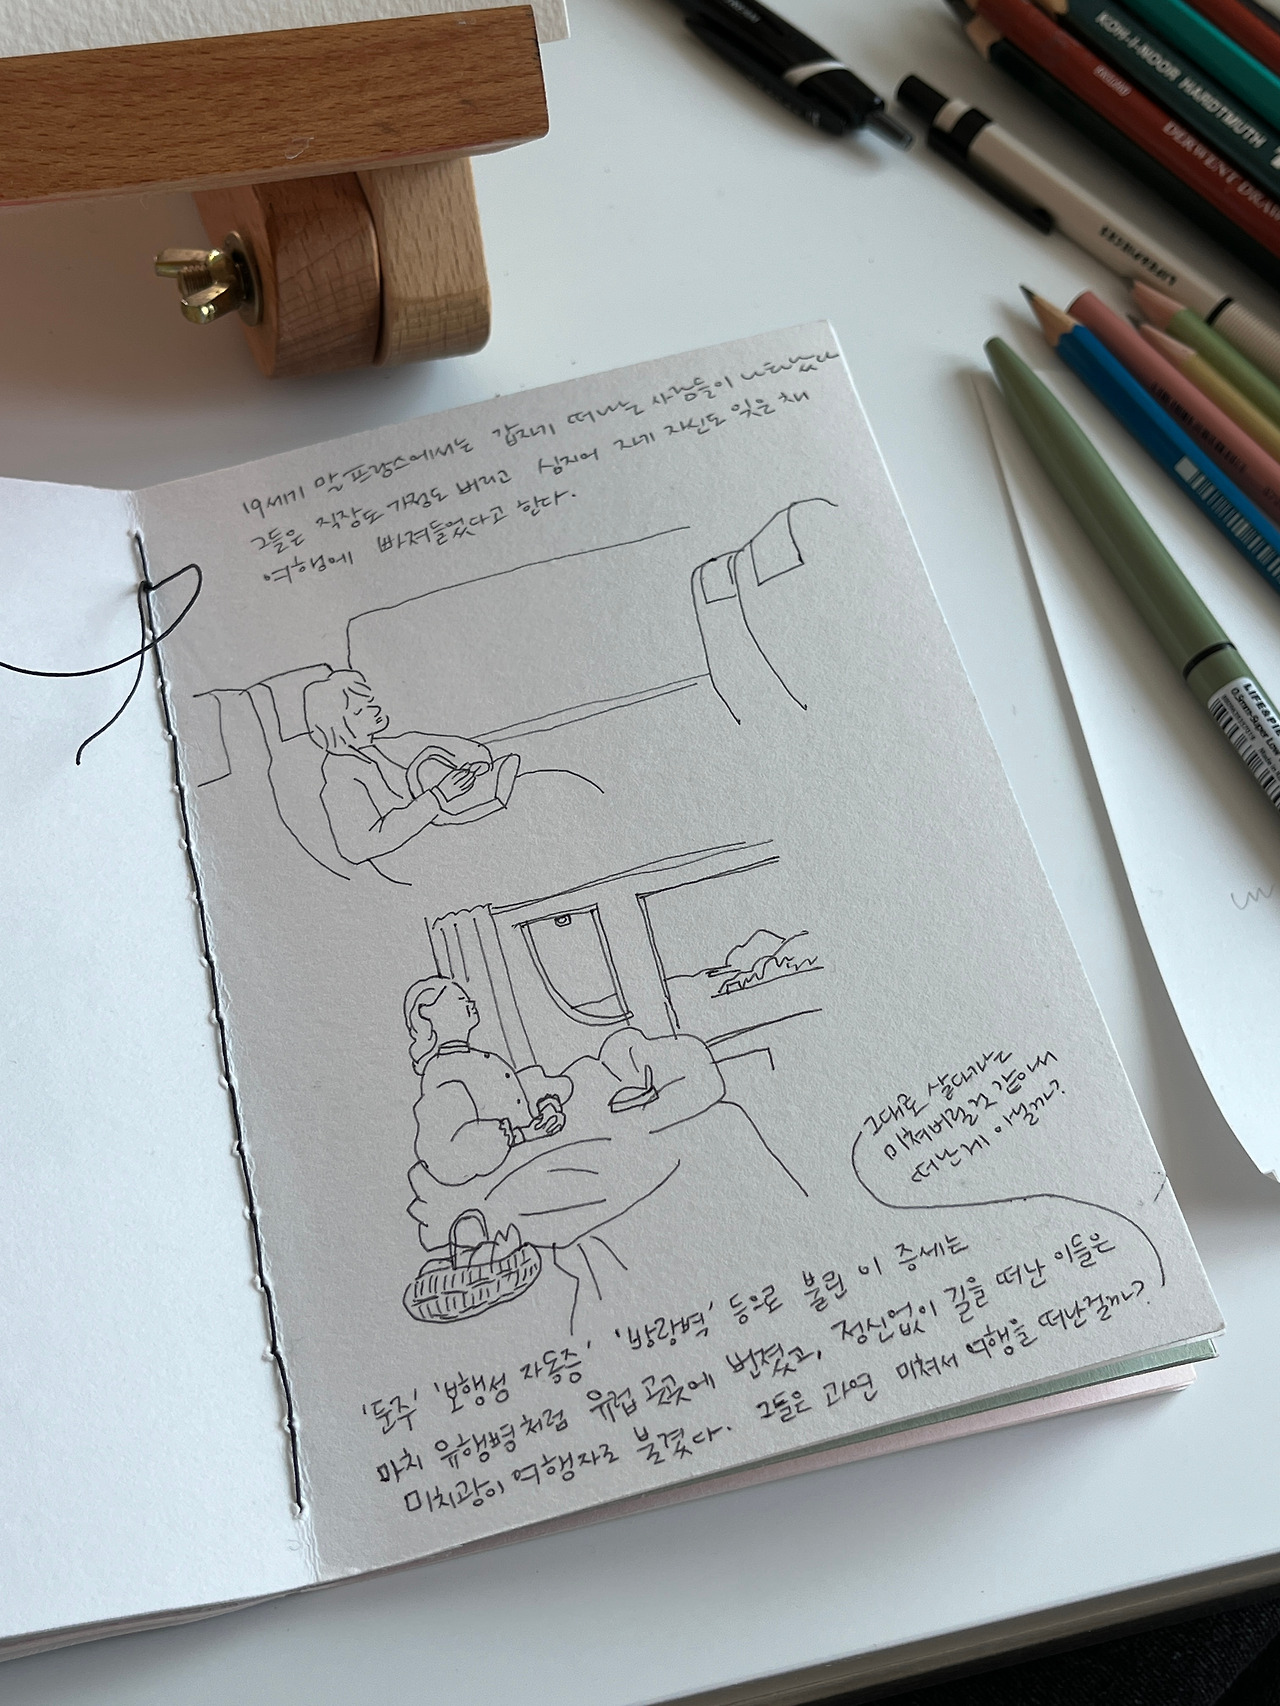 19세기 말 프랑스에서는 갑자기 떠나는 사람들이 나타났다
그들은 직장도 가정도 버리고 심지어 자기 자신도 잊은 채
여행에 빠져들었다고 한다.
그대로 살다가는
미쳐버릴 것 같아서
떠난 게 아닐까?
'둔주' '보행성 자동증' '방랑벽' 등으로 불린 이 증세는
마치 유행병처럼 유럽 곳곳에 번졌고, 정신없이 길을 떠난 이들은
미치광이 여행자로 불렸다. 그들은 과연 미쳐서 여행을 떠난걸까?
KOH-I-NOOR HARDTMUTH
DERWENT DRAW
LIFE&PIE
0.5mm-Super Low